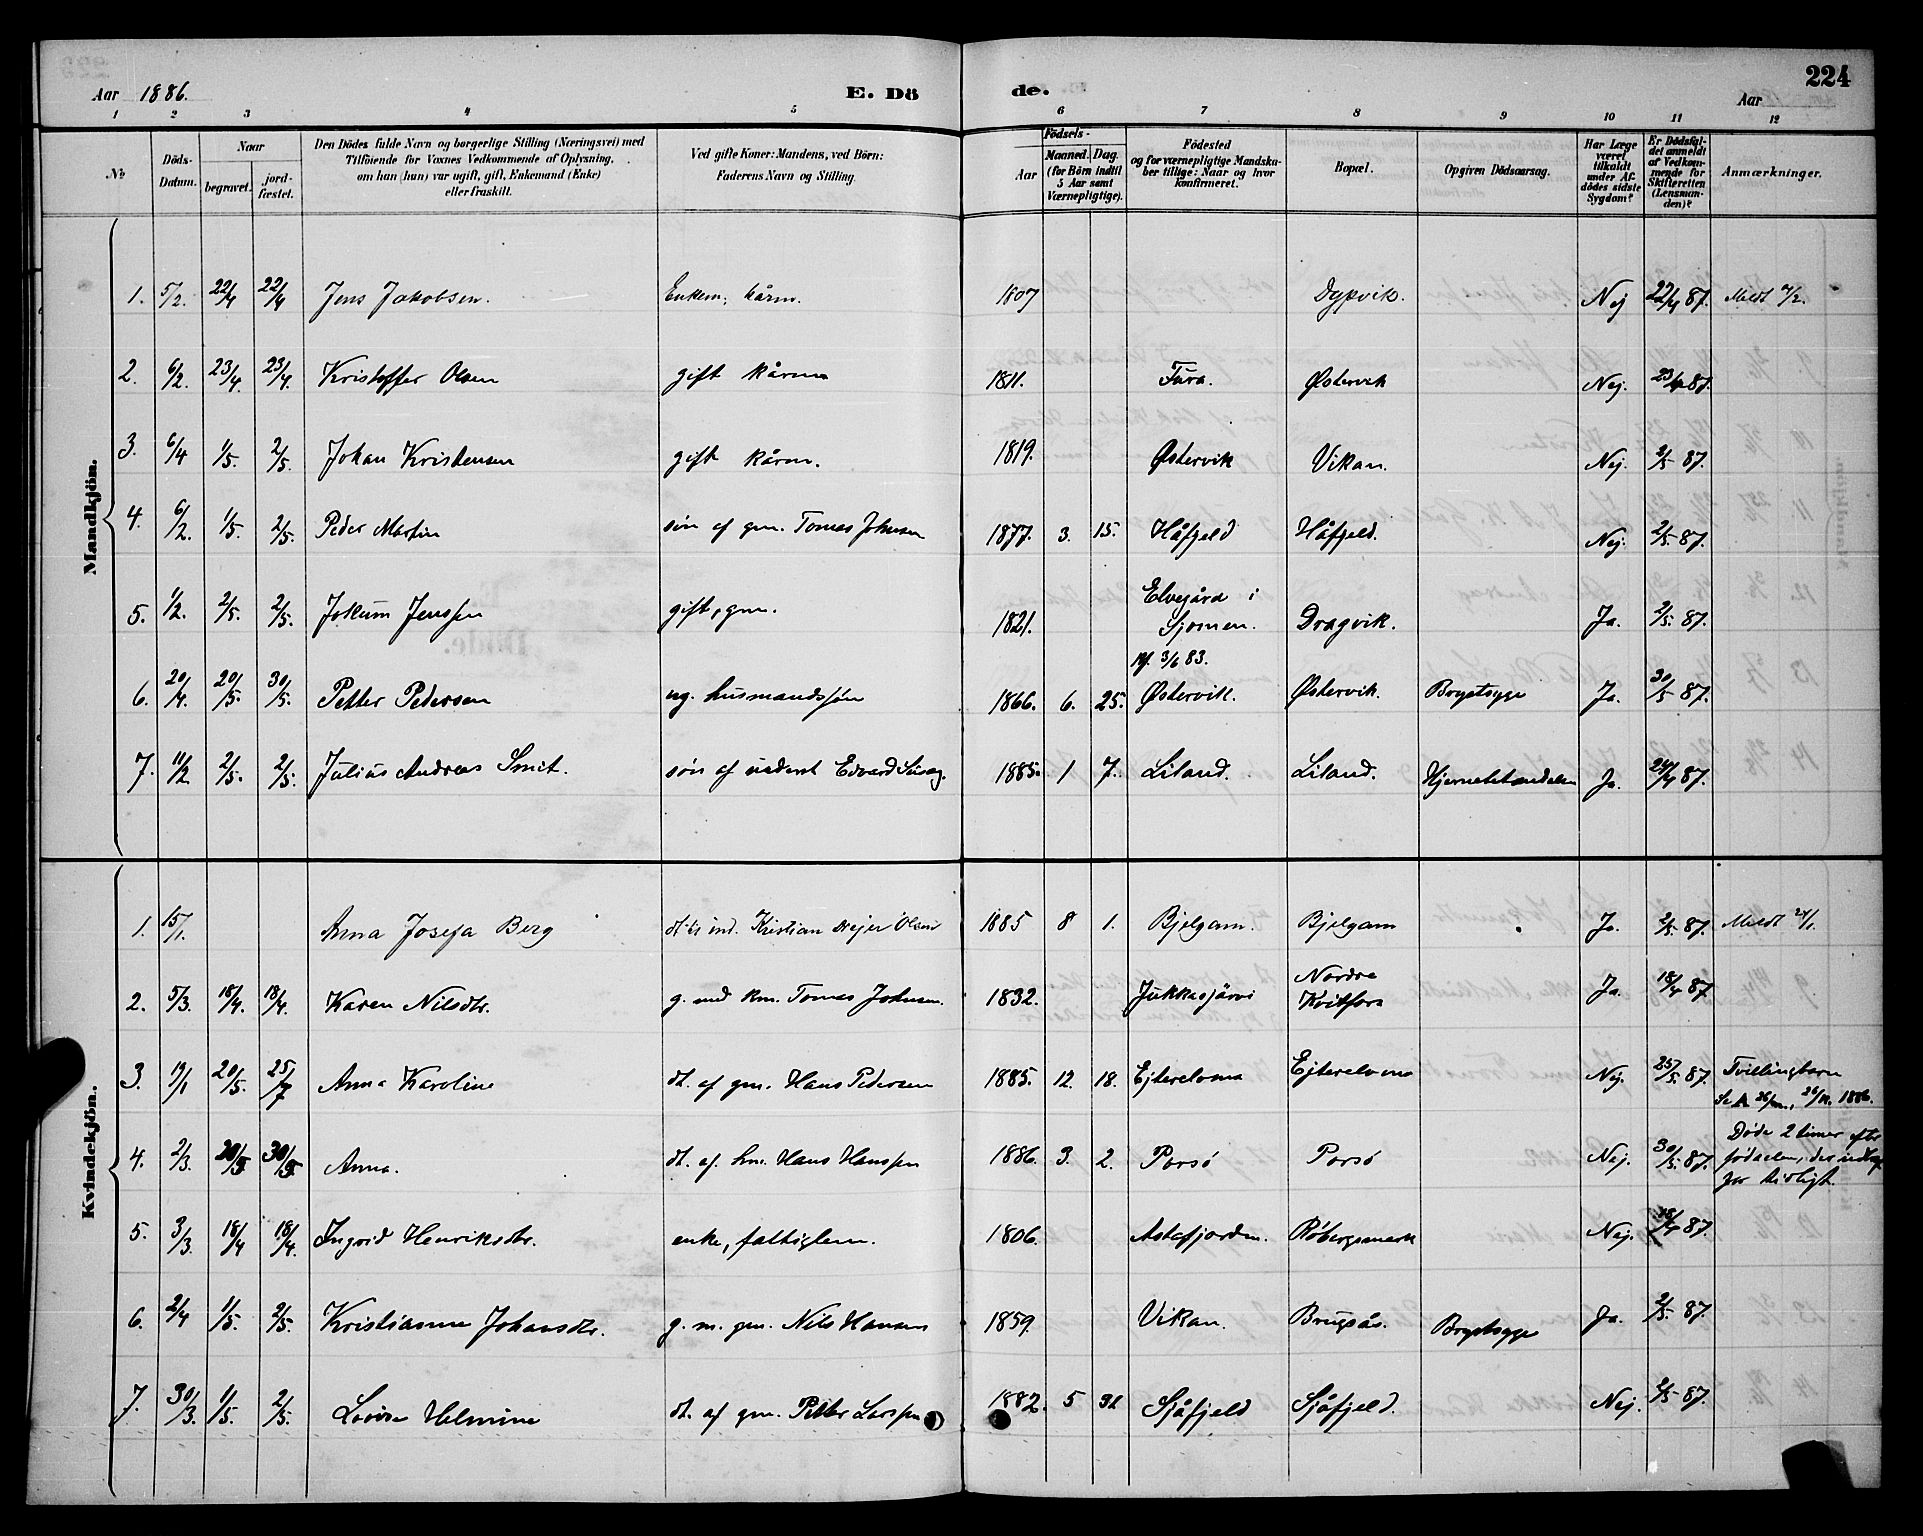 224
Aar 1886. E. Dö de. Aar
1 2 3 4 5 6 7 8 9 10 11 12
No Döds-Datum. Naar begravet. jordfæstet. Den Dödes fulde Navn og borgerlige Stilling (Næringsvei) med Tilföiende for Voxnes Vedkommende af Oplysning, om han (hun) var ugift, gift, Enkemand (Enke) eller fraskilt. Ved gifte Koner: Mandens, ved Börn: Faderens Navn og Stilling. Födsels- Aar Maaned. Dag. (for Börn indtil 5 Aar samt Værnepligtige). Födested og for værnepligtige Mandskaber tillige: Naar og hvor konfirmeret. Bopæl. Opgiven Dödsaarsag. Har Læge været tilkaldt under Afdödes sidste Sygdom? Er Dödsfaldet anmeldt af Vedkommende for Skifteretten (Lensmanden)? Anmærkninger.
Mandkjön.
1. 5/2. 22/4 22/4 Jens Jakobsen. Enkem, kårm. 1807 Dypvik. Nej 22/4 87. Meldt
2. 6/2. 23/4. 23/4. Kristoffer Olsen gift kårm 1811. Tura. Østervik Nej. 23/4 87.
3. 6/4 1/5. 2/5. Johan Kristensen gift kårm. 1819. Østervik Vikan. Nej. 2/5 87.
4. 6/2. 1/5. 2/5. Peder Martin søn af gm. Tomas Johnsen 1877. 3. 15. Håfjeld Håfjeld. Nej. 2/5. 87.
5. 1/2. 2/5. 2/5. Jokum Jenssen gift, gm. 1821. Elvegård i Sjomen. Dragvik. Ja. 2/5. 87.
6. 20/4. 20/5. 30/5. Petter Pedersen ug. husmandssøn 1866. 6. 25. Kf. 3/6 83. Østervik. Østervik. Brystsyge Ja. 30/5 87.
7. 11/2 2/5. 2/5. Julius Andreas Smit. søn af Edvard 1885. 1 7. Liland. Liland. Ja. 24/4 87.
Kvindekjön.
1. 15/1. Anna Josefa Berg Kristian Olsen 1885 8 1. Bjelgam. Bjelgam Ja. 2/5. 87. Meldt 24/1.
2. 5/3. 18/4. 18/4. Karen Nilsdtr. g. med km. Tomas Johnsen. 1832. Jukkasjärvi Nordre Kvitfors Ja. 18/4 87.
3. 19/1 20/5. 25/7 Anna Karoline dt. af gm. Hans Pedersen 1885. 12. 18. Ejterelvma Nej. 25/5. 87. Tvillingbarn Se A 1886.
4. 2/3. 20/5 30/5 Anna. dt. af hm. Hans Hanssen 1886. 3. 2. Porsø Porsø Nej. 30/5. 87. Døde 2 timer efter fødselen,
5. 3/3. 18/4 18/4. Ingrid Henriksdtr. enke, fattiglem. 1806. Astafjorden. Røbergsmark Nej. 18/4 87.
6. 2/4 1/5. 2/5. Kristianna Johansdtr. g. m. gm. Nils Hansen 1859. Vikan. Brugsås. Brystsyge Ja. 2/5. 87.
7. 30/3. 1/5. 2/5. Lovise Helmine dt. af gm. Petter Larssen 1882. 5 31 Sjåfjeld Sjåfjeld. Nej. 2/5 87.